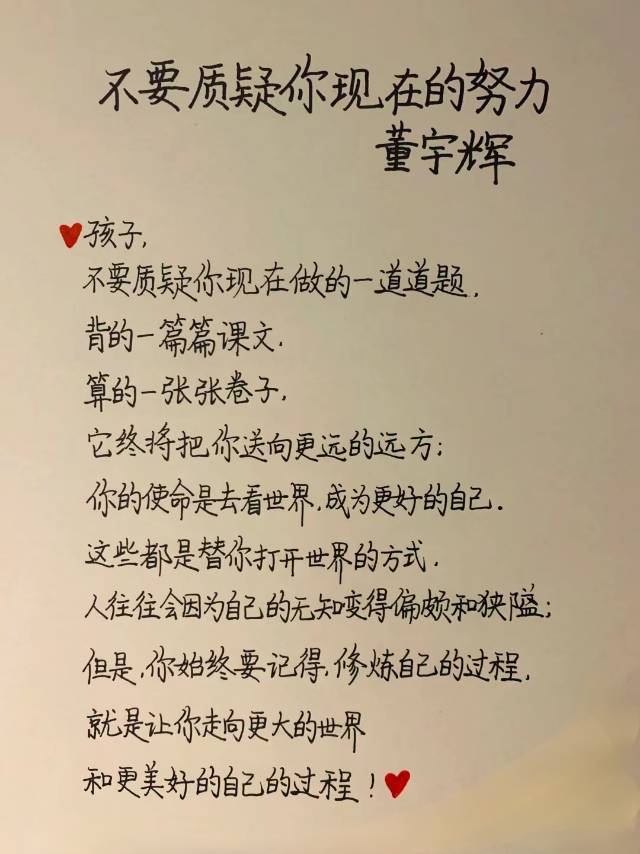 不要质疑你现在的努力
董宇辉
孩子,
不要质疑你现在做的一道道题,
背的一篇篇课文,
算的一张张卷子,
它终将把你送向更远的远方;
你的使命是去看世界,成为更好的自己.
这些都是替你打开世界的方式.
人往往会因为自己的无知变得偏颇和狭隘;
但是,你始终要记得,修炼自己的过程,
就是让你走向更大的世界
和更美好的自己的过程!